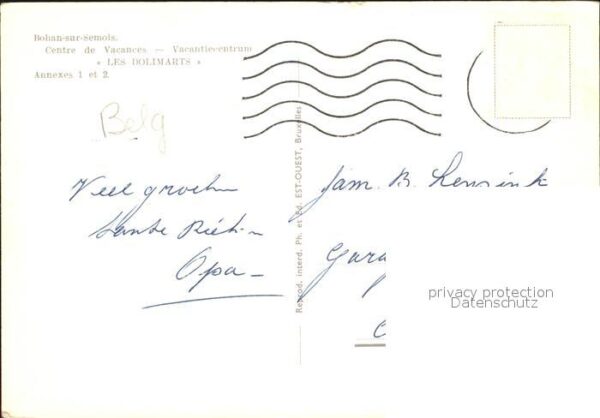 Bohan-sur-Semois.
Centre de Vacances — Vacantiecentrum
« LES DOLIMARTS »
Annexes 1 et 2.
Belg
Veel groeten
tante
Opa
Fam. B. Lensink
Reprod. interd. Ph. et Ed. EST-OUEST, Bruxelles
privacy protection
Datenschutz